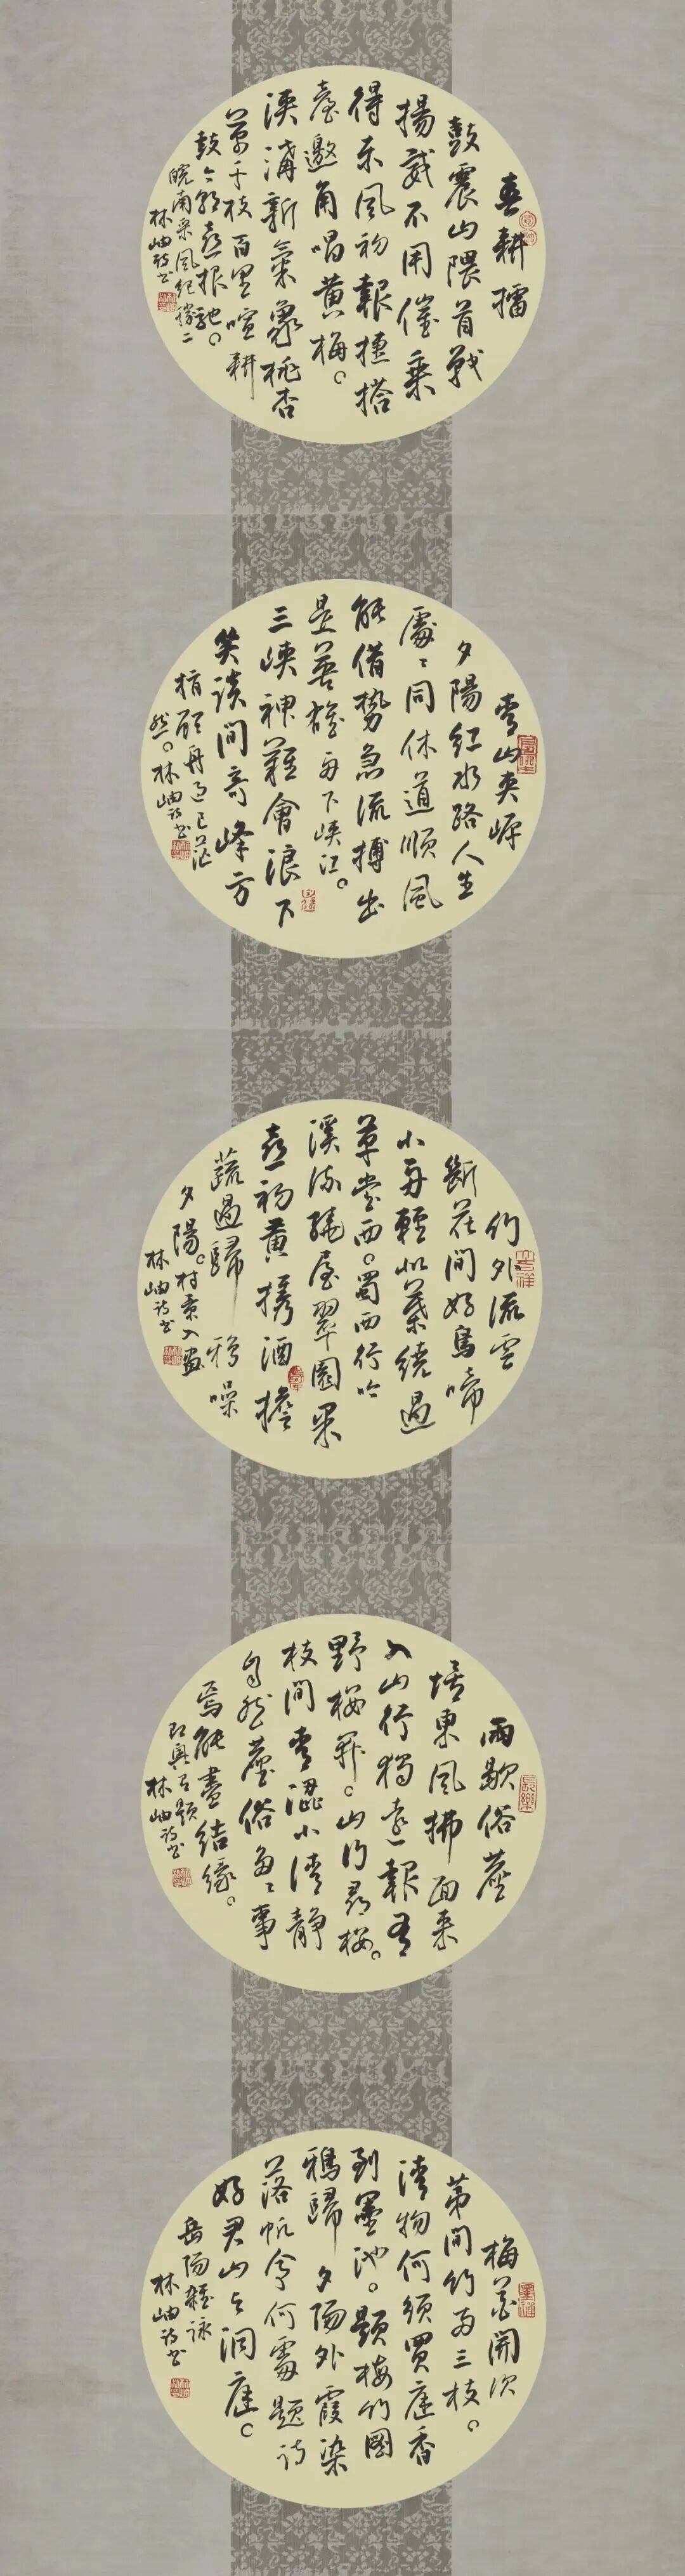 春耕擂
鼓震山隈首戰
揚威不用催乘
得東風初報捷搭
臺邀角唱黃梅。
溪溝新氣象桃杏
萬千枝百里喧耕
鼓人歡喜報馳。
皖南采風紀勝二
林岫詩書
雪山夾岸
夕陽紅水路人生
處處同休道順風
能借勢急流搏出
是英雄舟下峽江。
三峽神難會浪下
笑談間奇峰方
指顧舟過已茫
然。林岫詩書
竹外流雲
斷花間好鳥啼
小舟輕似葉繞過
草堂西。蜀西行吟
溪流繞屋翠園果
喜初黃攜酒擔
蔬過歸鴉噪
夕陽。村景入畫
林岫詩書
雨歇俗塵
埃東風拂面來
入山行獨意報有
野梅開。山行尋梅。
枝間雪澀小清靜
自然塵俗多多事
焉能盡結緣。
即興又題
林岫詩書
梅花開次
第間竹兩三枝。
清物何須買庭香
到墨池。題梅竹圖
鴉歸夕陽外霞染
落帆舍何處題詩
好君山與洞庭。
岳陽雜詠
林岫詩書